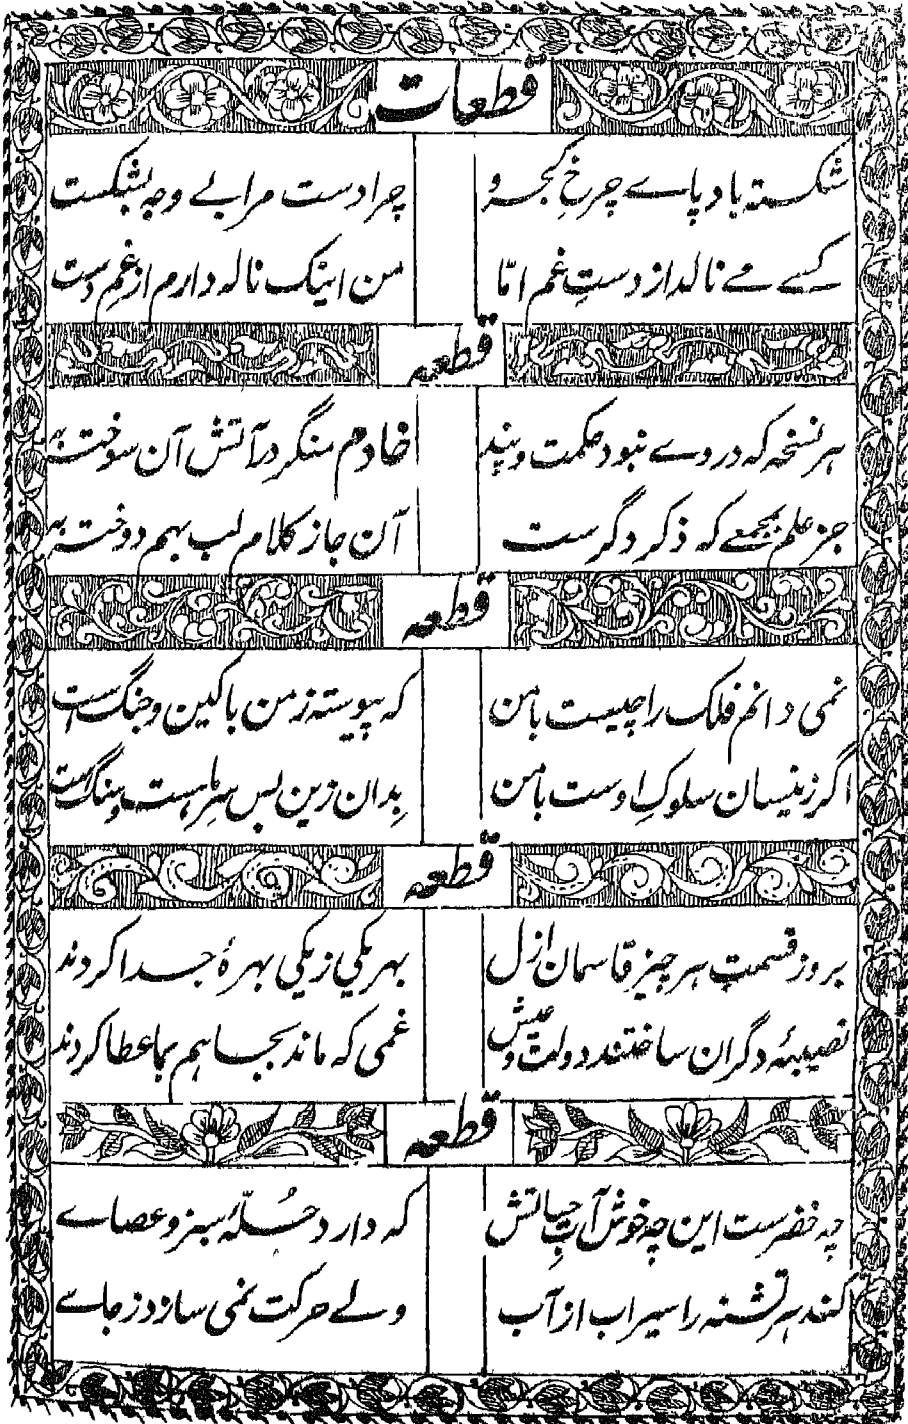 قطعات
شکسته باد پاے چرخِ کجرو چرا دست مرا بے وجہ بشکست
کسے مے نالد از دستِ غم امّا من اینک نالہ دارم از غمِ دست
قطعہ
ہر نسخہ کہ در وے نبود حکمت و پند خادم منگر در آتش آن سوختہ بہ
جز علم بمجمعے کہ ذکر دگرست آن جا ز کلام لب بہم دوختہ بہ
قطعہ
نمی دانم فلک را چیست با من کہ پیوستہ ز من با کین و جنگ است
اگر زینسان سلوکِ اوست با من بدان زین پس سرِ ما ہست و سنگ است
قطعہ
بروز قسمتِ ہر چیز قاسمان ازل بہر یکی ز یکی بہرۂ جدا کردند
نصیبۂ دگران ساختند دولت و عیش غمی کہ ماند بجا ہم بما عطا کردند
قطعہ
چہ خضرست این چہ خوش آبِ حیاتش کہ دارد حُلّۂ سبز و عصاے
کند ہر تشنہ را سیراب از آب ولے حرکت نمی سازد ز جاے